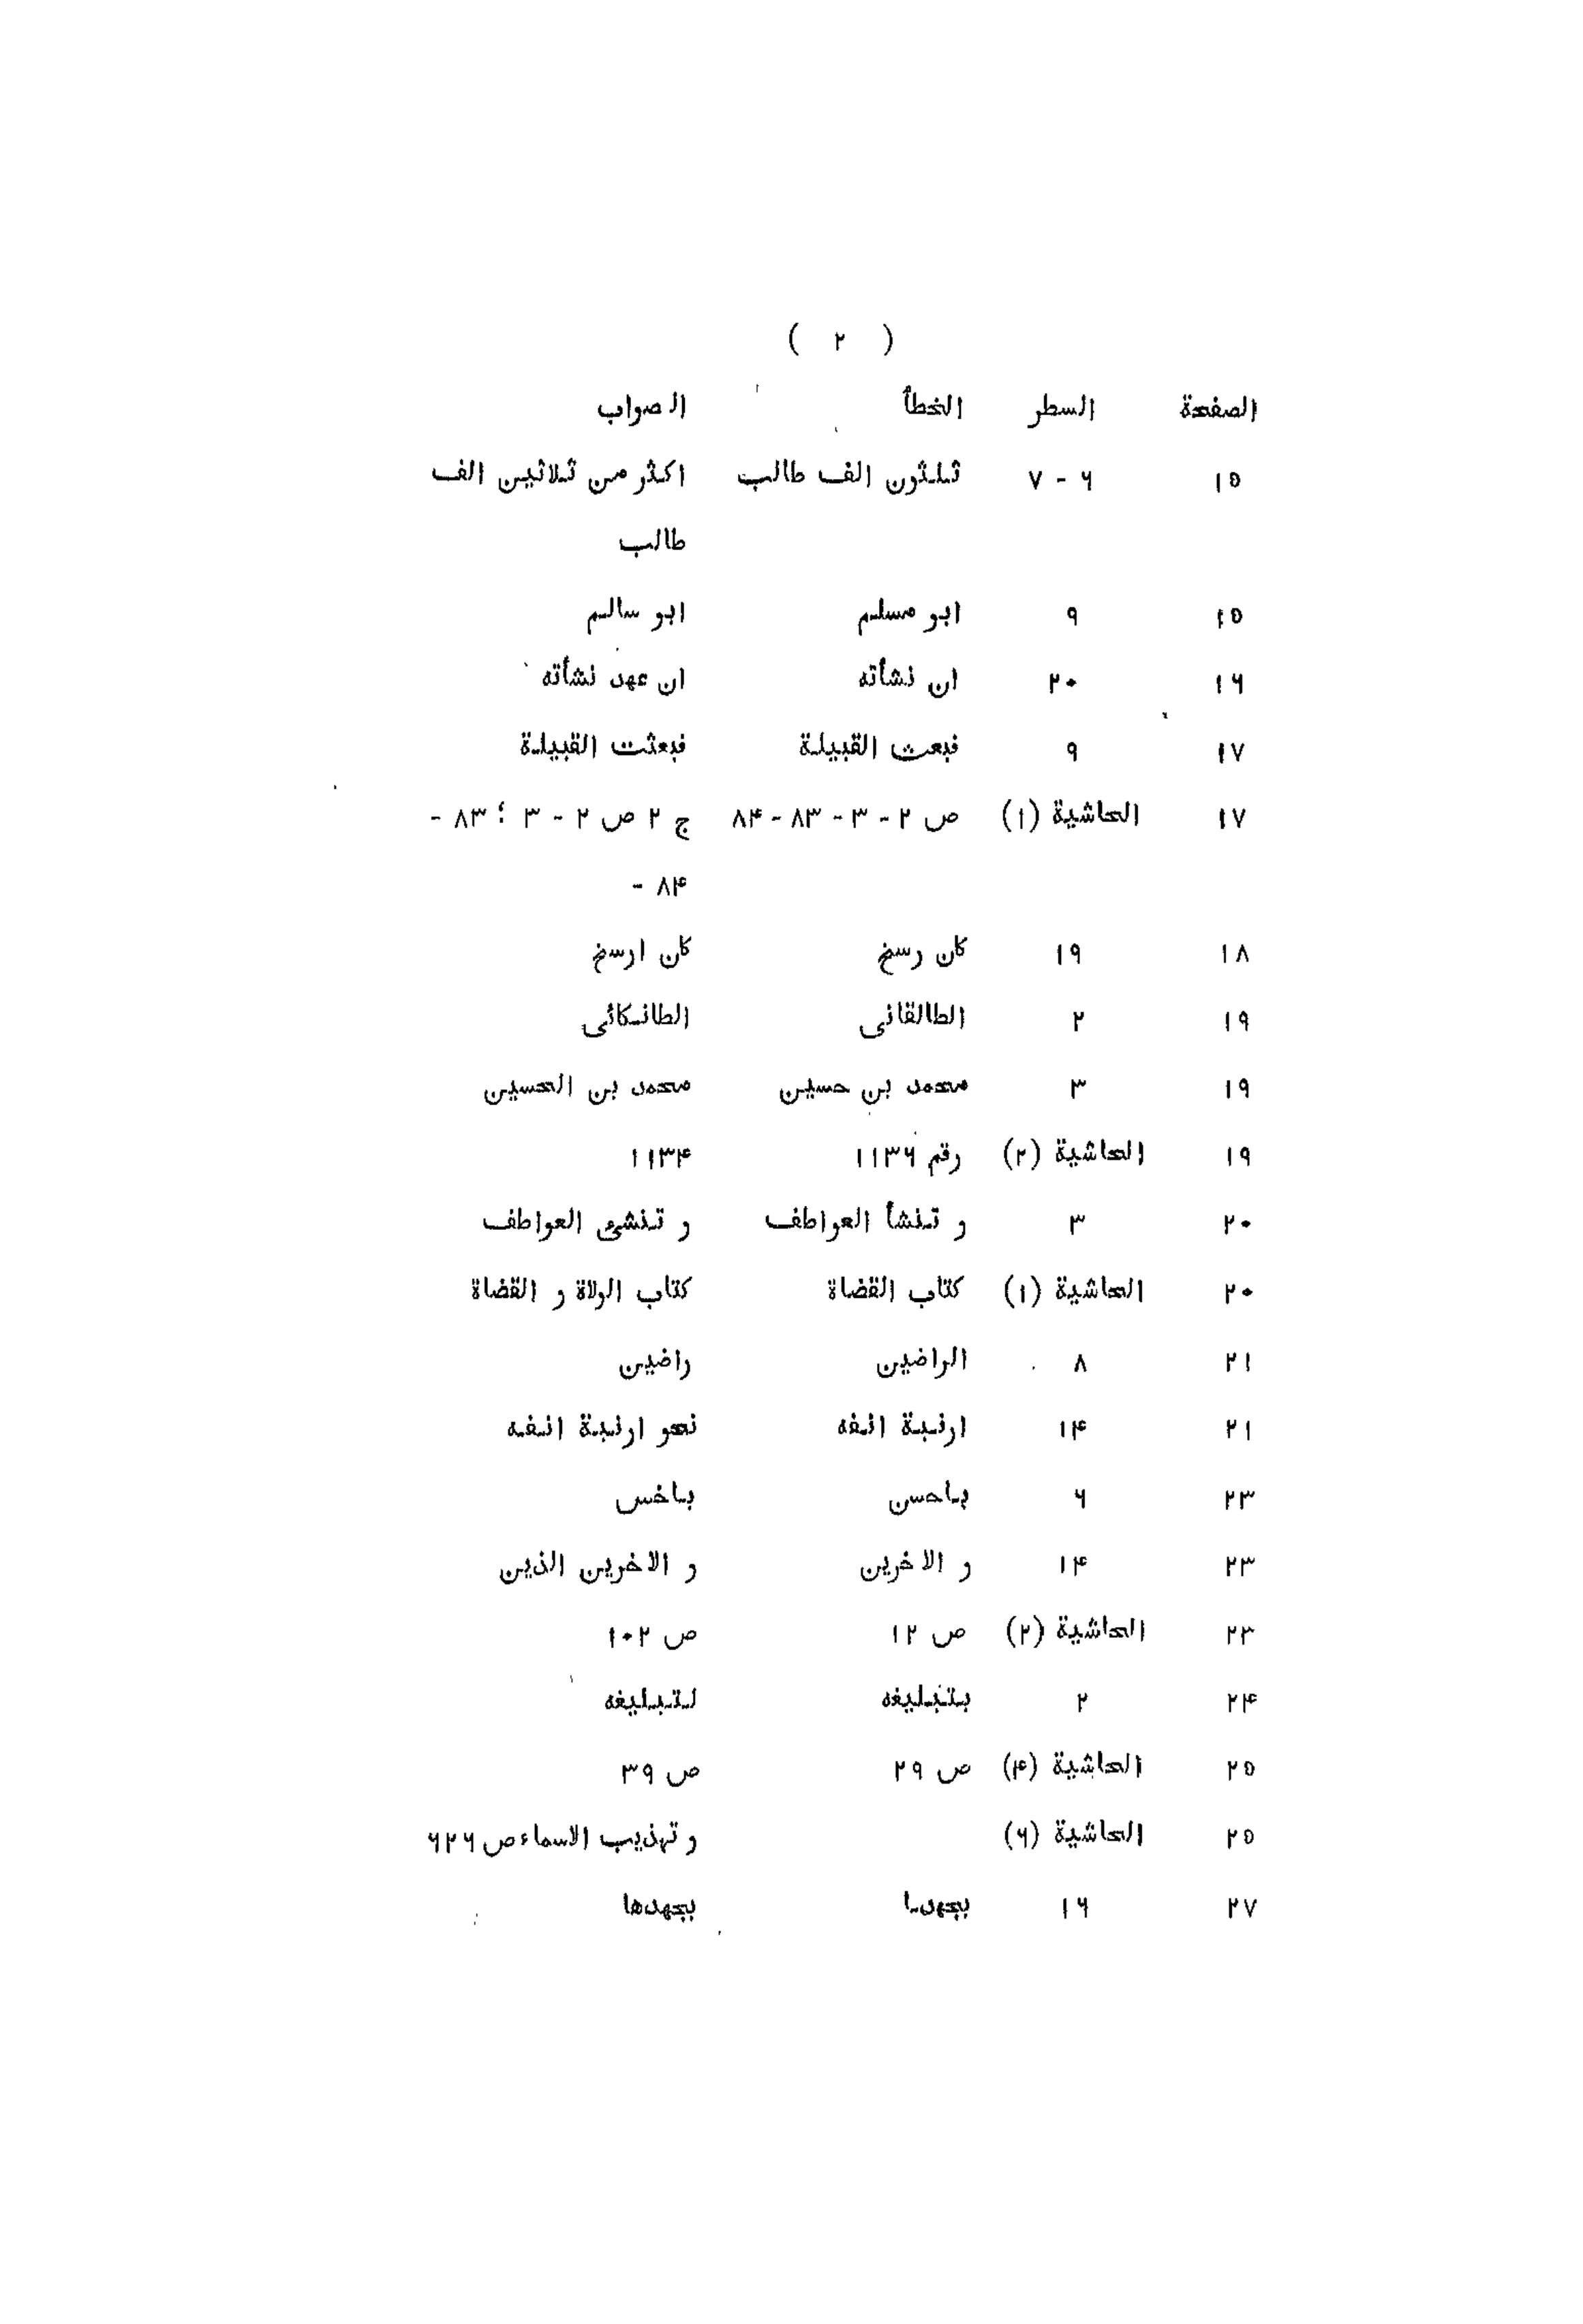 ( ٢ )
الصفحة السطر الخطأ الصواب
١٥ ٦ - ٧ ثلثون الف طالب اكثر من ثلاثين الف
طالب
١٥ ٩ ابو مسلم ابو سالم
١٦ ٢٠ ان نشأته ان عهد نشأته
١٧ ٩ فبعث القبيلة فبعثت القبيلة
١٧ الحاشية (١) ص ٢ - ٣ - ٨٣ - ٨٤ ج ٢ ص ٢ - ٣ ؛ ٨٣ -
٨٤ -
١٨ ١٩ كان رسخ كان ارسخ
١٩ ٢ الطالقانى الطانكائى
١٩ ٣ محمد بن حسين محمد بن الحسين
١٩ الحاشية (٢) رقم ١١٣٦ ١١٣٤
٢٠ ٣ و تنشأ العواطف و تنشئ العواطف
٢٠ الحاشية (١) كتاب القضاة كتاب الولاة و القضاة
٢١ ٨ الراضين راضين
٢١ ١٤ ارنبة انفه نحو ارنبة انفه
٢٣ ٦ باحسن باخس
٢٣ ١٤ و الاخرين و الاخرين الذين
٢٣ الحاشية (٢) ص ١٢ ص ١٠٢
٢٤ ٢ بتبليغه لتبليغه
٢٥ الحاشية (٤) ص ٢٩ ص ٣٩
٢٥ الحاشية (٦) و تهذيب الاسماء ص ٦٢٦
٢٧ ١٦ بجهدا بجهدها